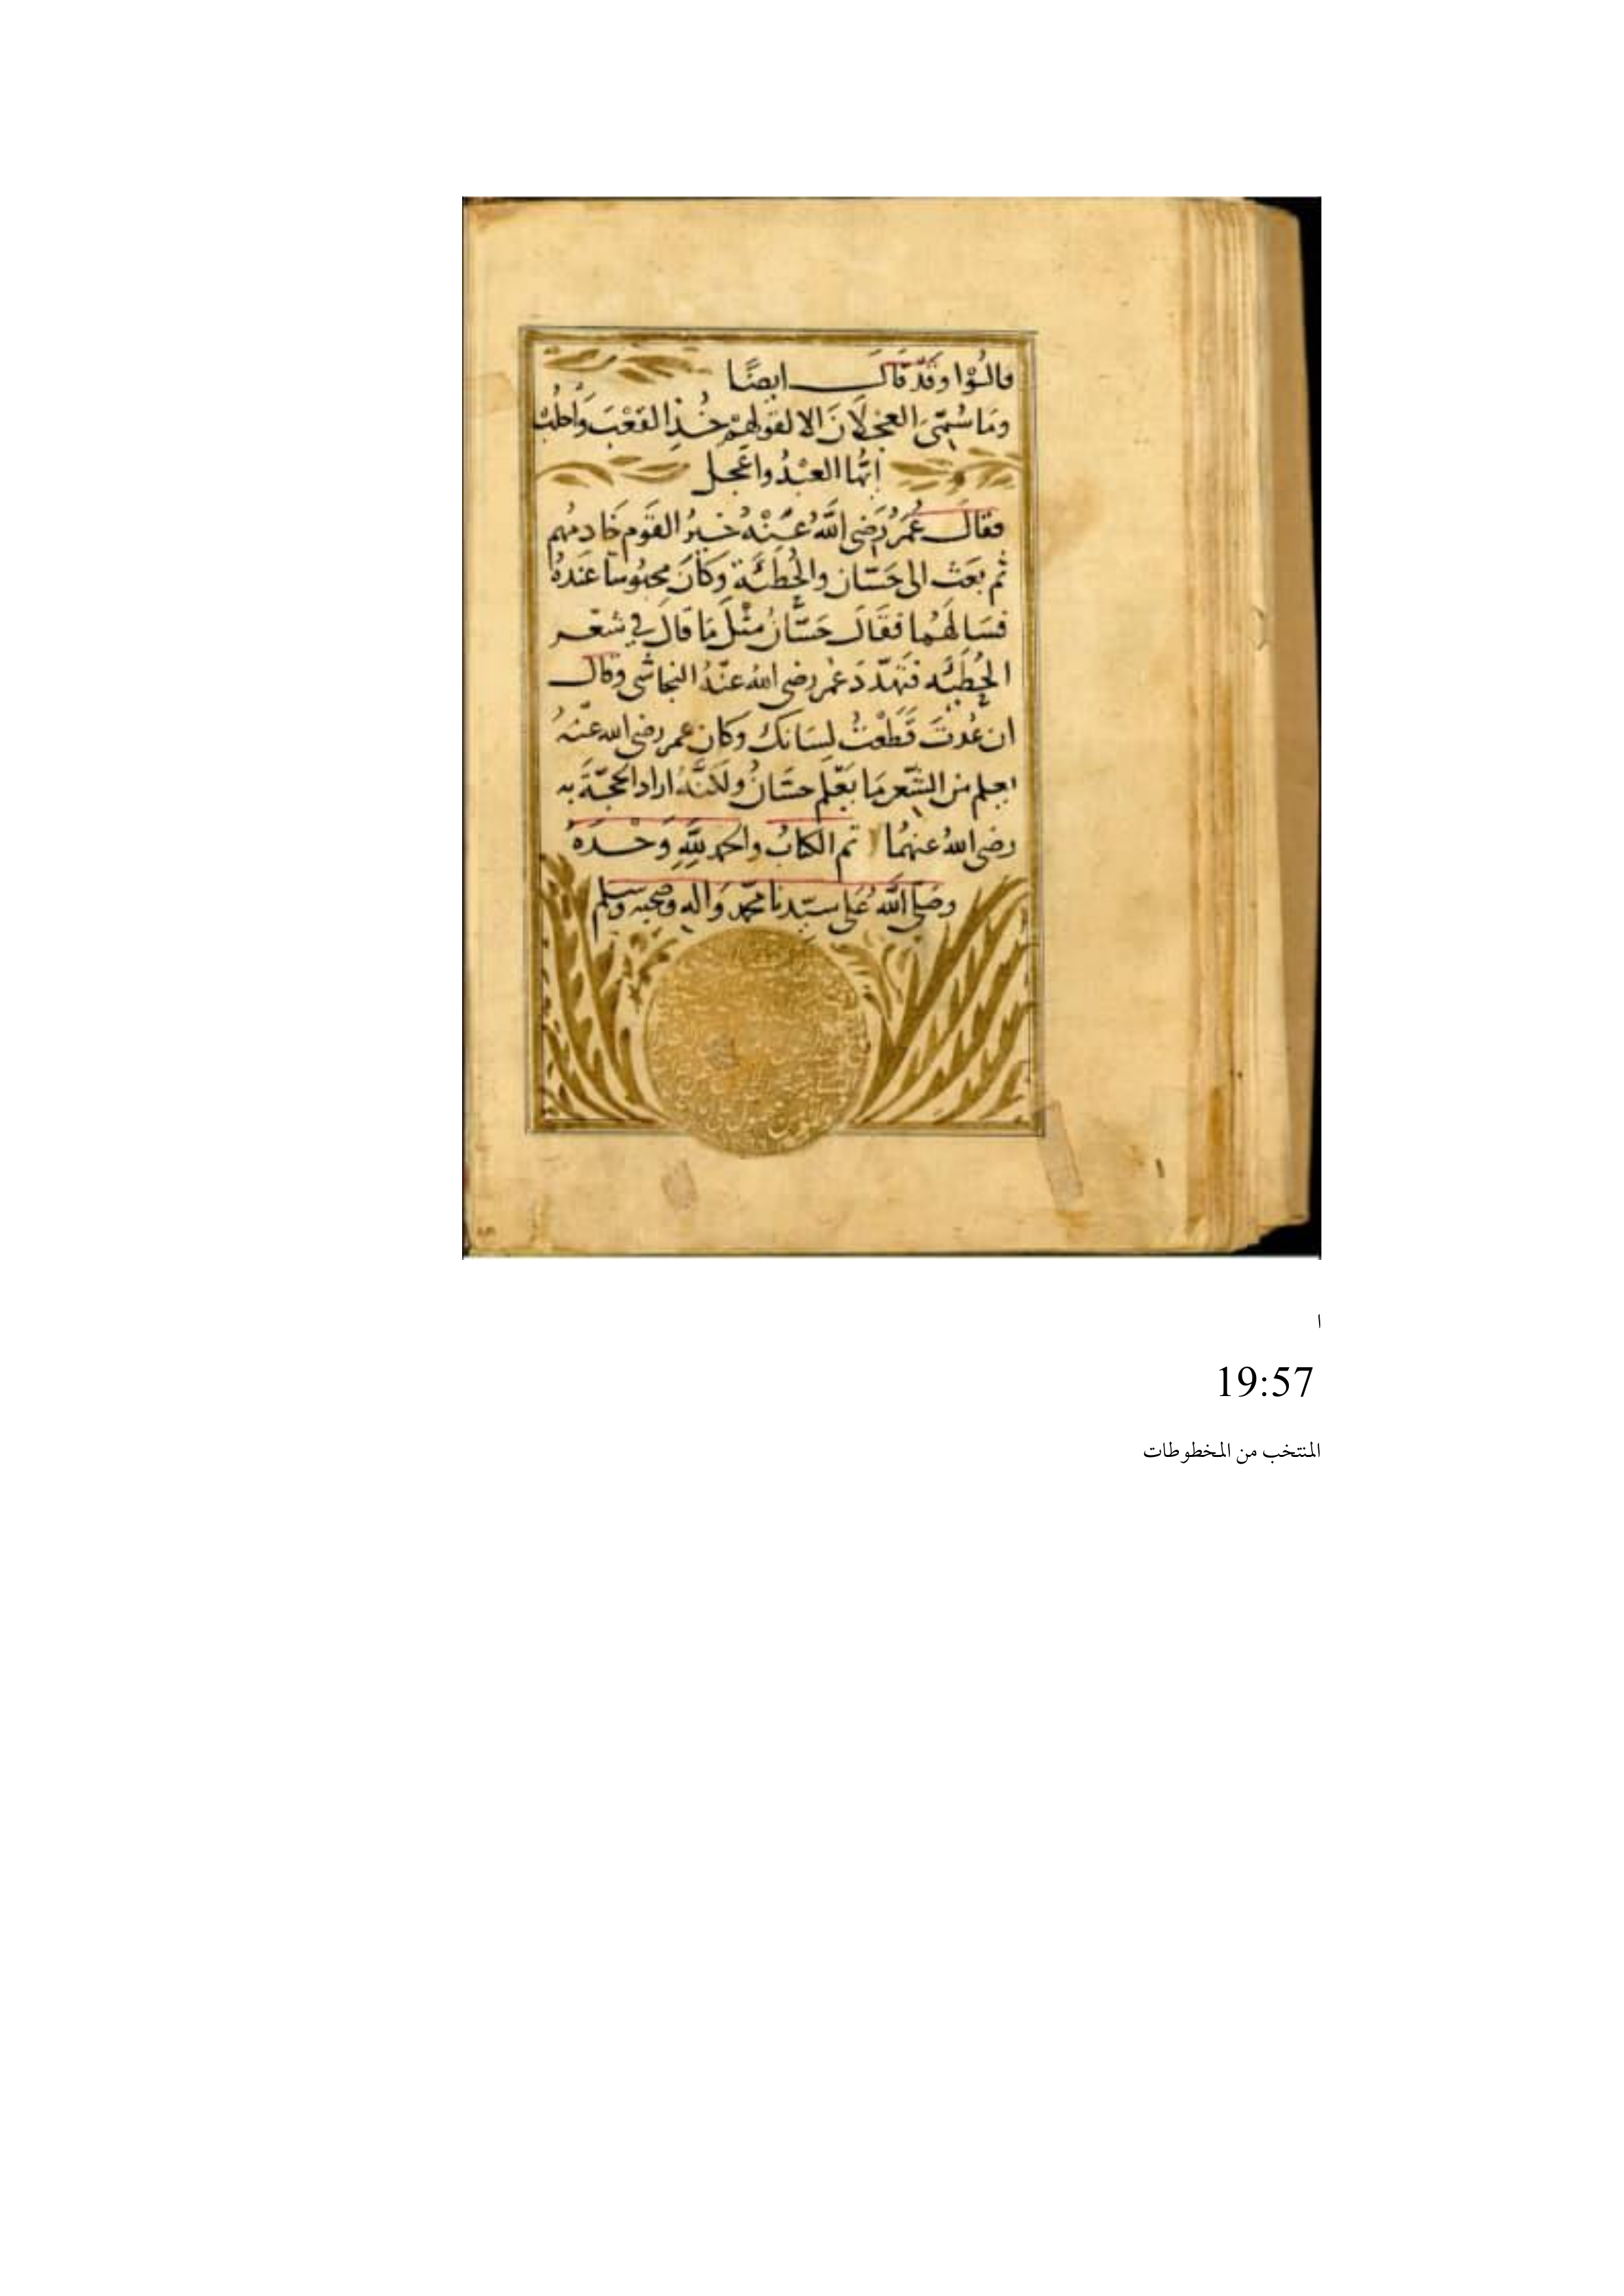 قالُوْا وقَدْ قَالَ ايضًا
ومَا سُمّىَ العجْلَانَ الا لقولهِمْ خُذِ القَعْبَ وَاحلُبْ
ايُّها العبْدُ واعجل
فقالَ عُمَرُ رَضى اللَّهُ عَنْهُ خيرُ القَوم خَادمُهم
ثم بَعَثَ الى حَسّان والحُطَئَة وكَانَ محبُوسًا عندهُ
فسَالَهُما فقَالَ حَسَّانُ مثْلَ مَا قالَ فى شعْر
الحُطَئَه فتَهَدّدَ عُمر رضى اللهُ عنْهُ النجاشى وقال
ان عُدتَ قَطَعْتُ لسَانكَ وكان عمر رضى الله عنْهُ
يعلم من الشّعر مَا يَعْلم حسّانُ ولَكنَّهُ اراد الحجّةَ به
رضى اللهُ عنهُما تم الكتابُ والحمد للَّهِ وَحْدَهُ
وصَلى اللَّهُ عَلى سيّدنا محمّد وَاله وصحبه وسلم
ا
19:57
المنتخب من المخطوطات